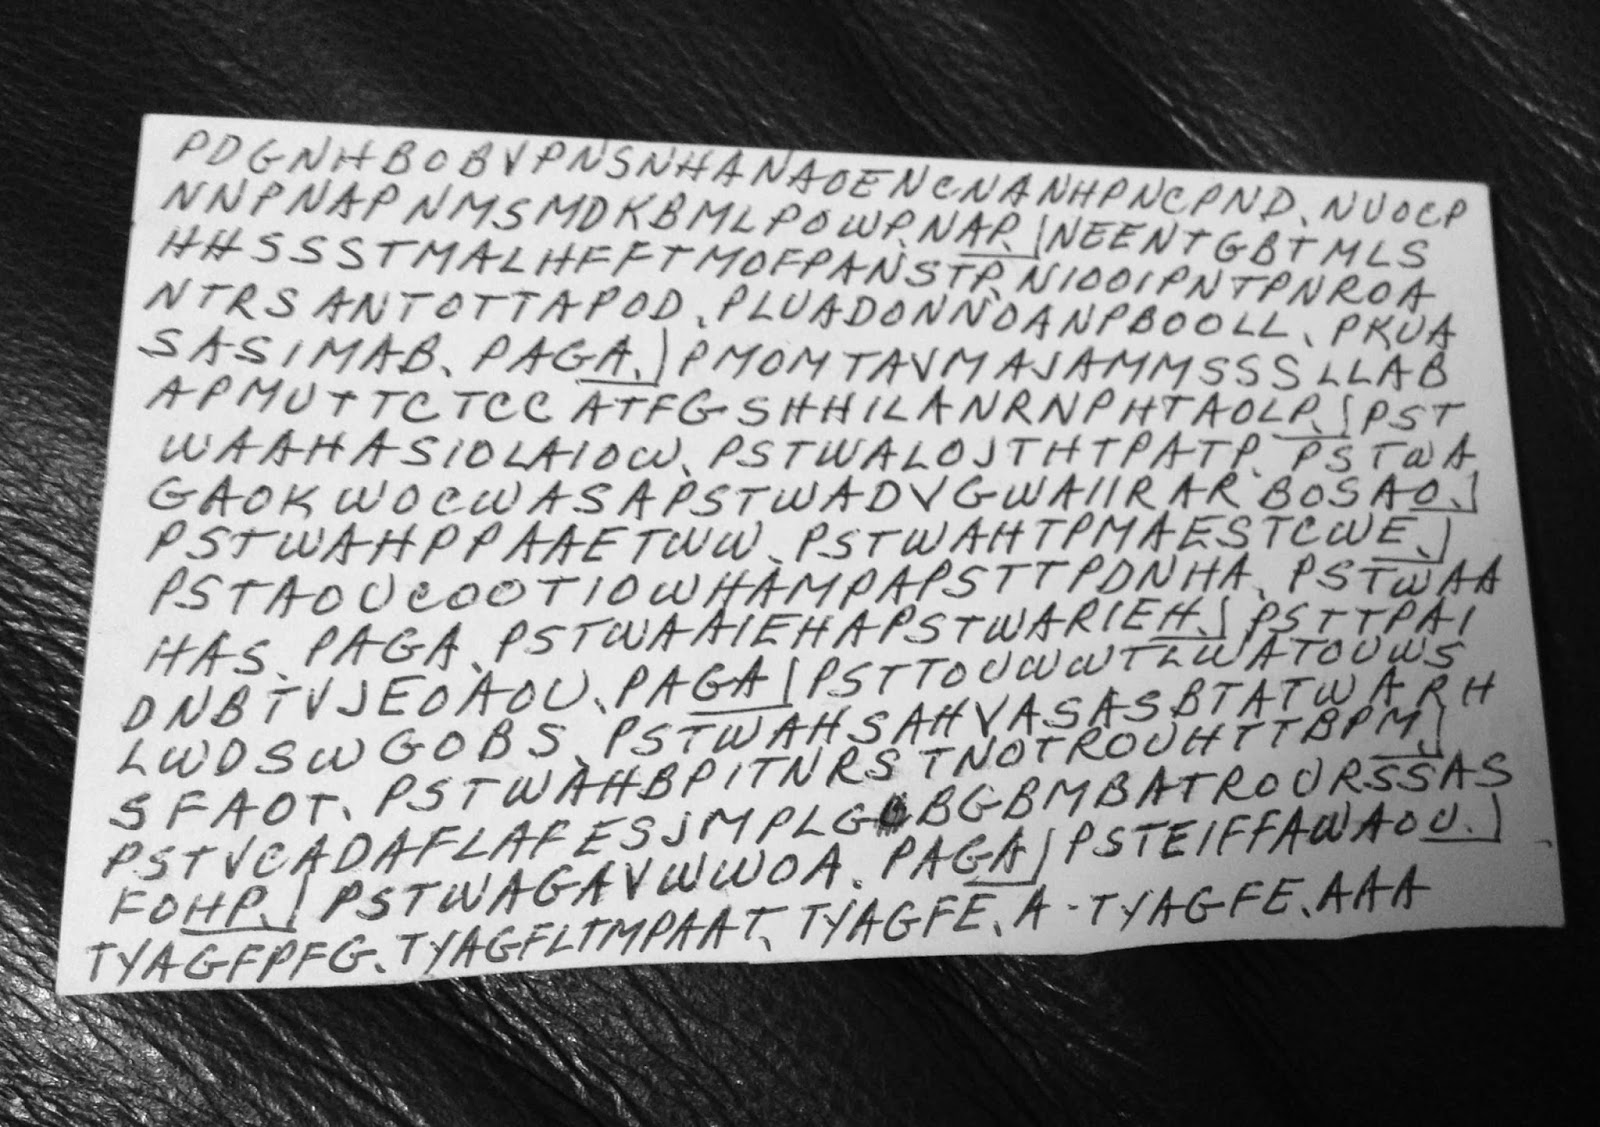 PDGNHBOBVPNSNHANAOENCNANHPNCPND、NUOCP
NNPNAPNMSMDKBMLPOWP、NAP.|NEENTGBTMLS
HHSSSTMALHFFTMOFPANSTP、NIOOIPNTPNROA
NTRSANTOTTAPOD、PLUADONNOANPBOOLL、PKUA
SASIMAB、PAGA、|PMOMTAVMAJAMMSSSLLAB
APMUTTCTCCATFGSHHILANRNPHTAOLP、|PST
WAAHASIOLAIOW、PSTWALOJTHTPATP、PSTWA
GAOKWOCWASAPSTWADVGWAIIRARBOSAO、|
PSTWAHPPAAETWW、PSTWAHTPMAESTCWE、|
PSTAOUCOOTIOWHAMPAPSTTPDNHA、PSTWAA
HAS、PAGA、PSTWAAIEHAPSTWARIEH、|PSTTPAI
DNBTVJEOAOU、PAGA|PSTTOUWWTLWATOUWS
LWDSWGOBS、PSTWAHSAHVASASBTATWARH
SFAOT、PSTWAHBPITNRSTNOTROUHTTBPM、|
PSTVCADAFLAFESJMPLGBGBMBATROURSSAS
FOHP、|PSTWAGAVWWOA、PAGA|PSTEIFFAWAOU、|
TYAGFPFG、TYAGFLTMPAAT、TYAGFE、A-TYAGFE、AAA